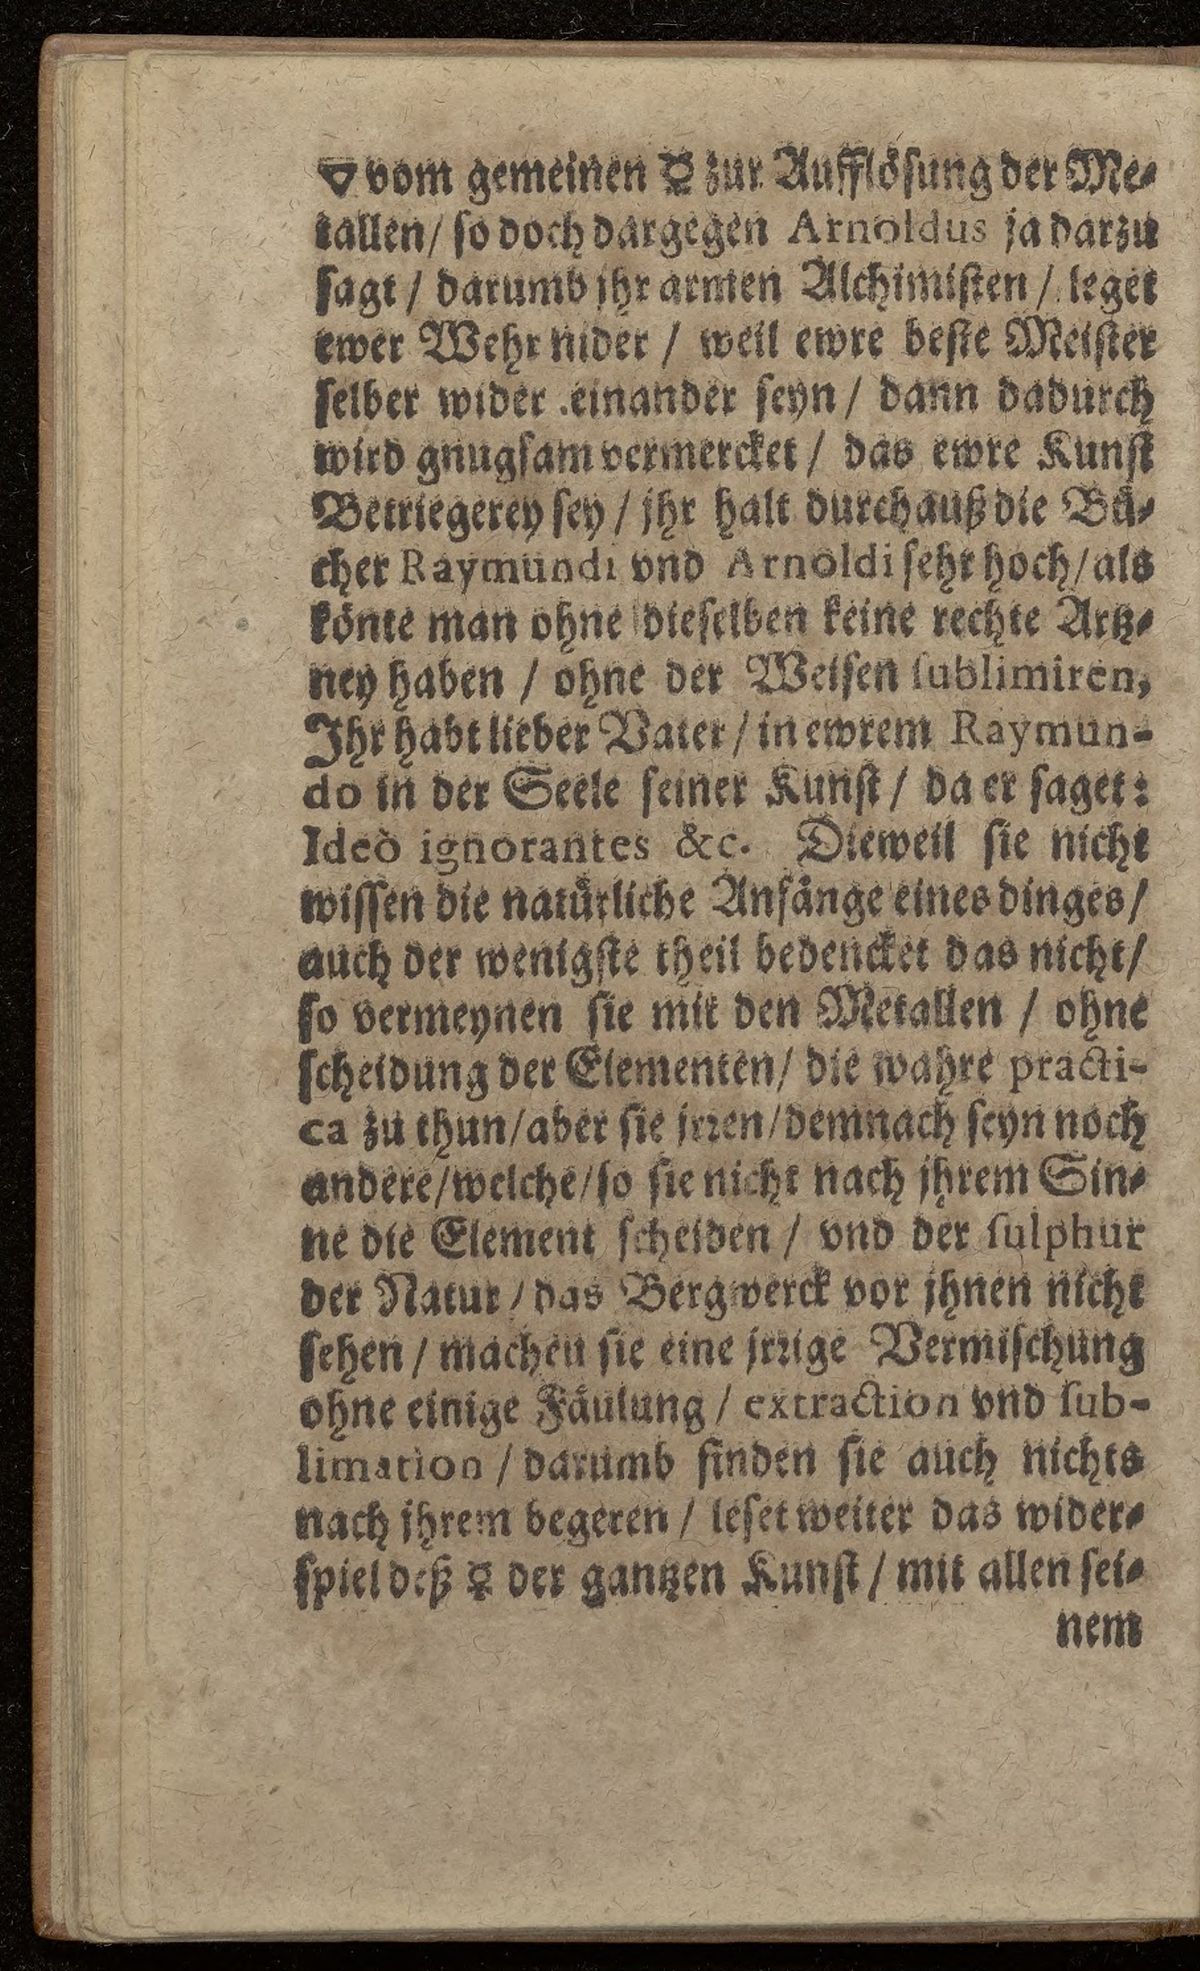 🜄 vom gemeinen ☿ zur Aufflöſung der Me⸗
tallen / ſo doch dargegen Arnoldus ja darzu
ſagt / darumb jhr armen Alchimiſten / leget
ewer Wehr nider / weil ewre beſte Meiſter
ſelber wider einander ſeyn / dann dadurch
wird gnugſam vermercket / das ewre Kunſt
Betriegerey ſey / jhr halt durchauß die Buͤ⸗
cher Raymundi vnd Arnoldi ſehr hoch / als
koͤnte man ohne dieſelben keine rechte Artz⸗
ney haben / ohne der Weiſen ſublimiren,
Jhr habt lieber Vater / in ewrem Raymun-
do in der Seele ſeiner Kunſt / da er ſaget:
Ideò ignorantes &c. Dieweil ſie nicht
wiſſen die natuͤrliche Anfaͤnge eines dinges /
auch der wenigſte theil bedencket das nicht /
ſo vermeynen ſie mit den Metallen / ohne
ſcheidung der Elementen / die wahre practi-
ca zu thun / aber ſie jrꝛen / demnach ſeyn noch
andere / welche / ſo ſie nicht nach jhrem Sin⸗
ne die Element ſcheiden / vnd der ſulphur
der Natur / das Bergwerck vor jhnen nicht
ſehen / machen ſie eine jrꝛige Vermiſchung
ohne einige Faͤulung / extraction vnd ſub-
limation / darumb finden ſie auch nichts
nach jhrem begeren / leſet weiter das wider⸗
ſpiel deß ☿ der gantzen Kunſt / mit allen ſei⸗
nem